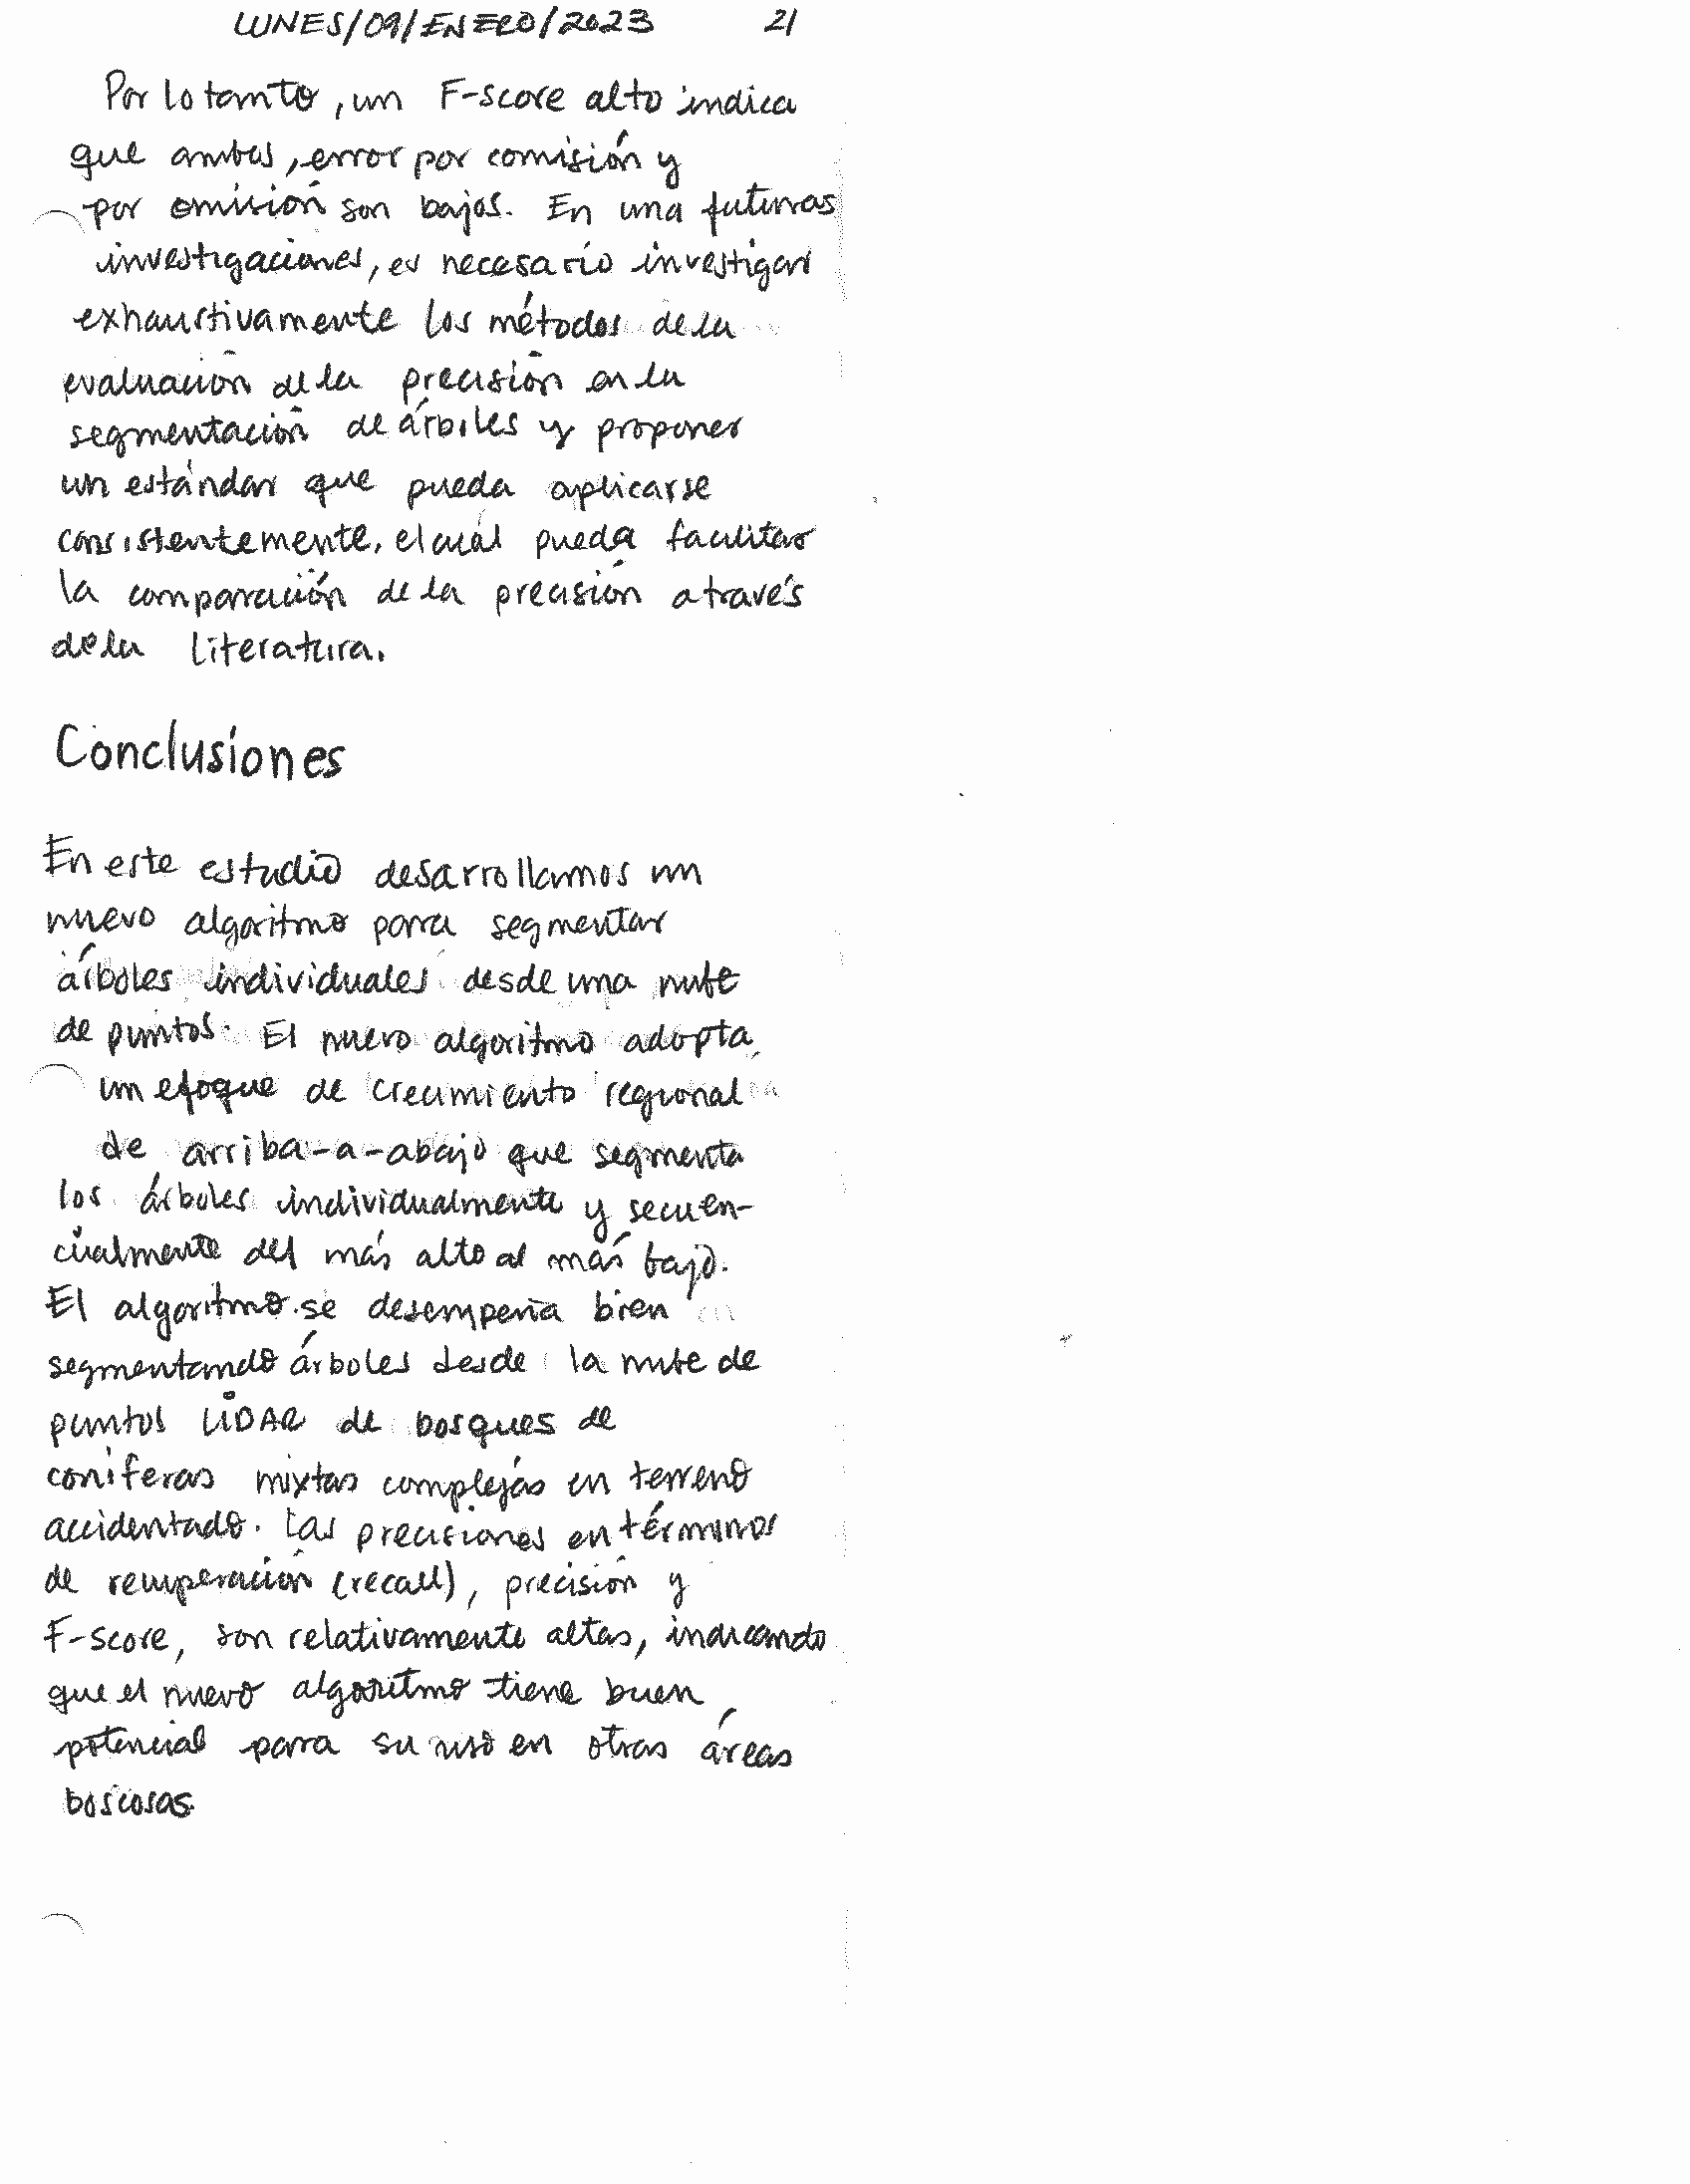 LUNES/09/ENERO/2023 21
Por lo tanto, un F-score alto indica
que ambas, error por comisión y
por omisión son bajos. En una futuras
investigaciones, es necesario investigar
exhaustivamente los métodos de la
evaluación de la precisión en la
segmentación de árboles y proponer
un estándar que pueda aplicarse
consistentemente, el cuál pueda facilitar
la comparación de la precisión a través
de la literatura.
Conclusiones
En este estudio desarrollamos un
nuevo algoritmo para segmentar
árboles individuales desde una nube
de puntos. El nuevo algoritmo adopta
un efoque de crecimiento regional
de arriba-a-abajo que segmenta
los árboles individualmente y secuen-
cialmente del más alto al más bajo.
El algoritmo se desempeña bien
segmentando árboles desde la nube de
puntos LiDAR de bosques de
coníferas mixtas complejas en terreno
accidentado. Las precisiones en términos
de recuperación (recall), precisión y
F-score, son relativamente altas, indicando
que el nuevo algoritmo tiene buen
potencial para su uso en otras áreas
boscosas.